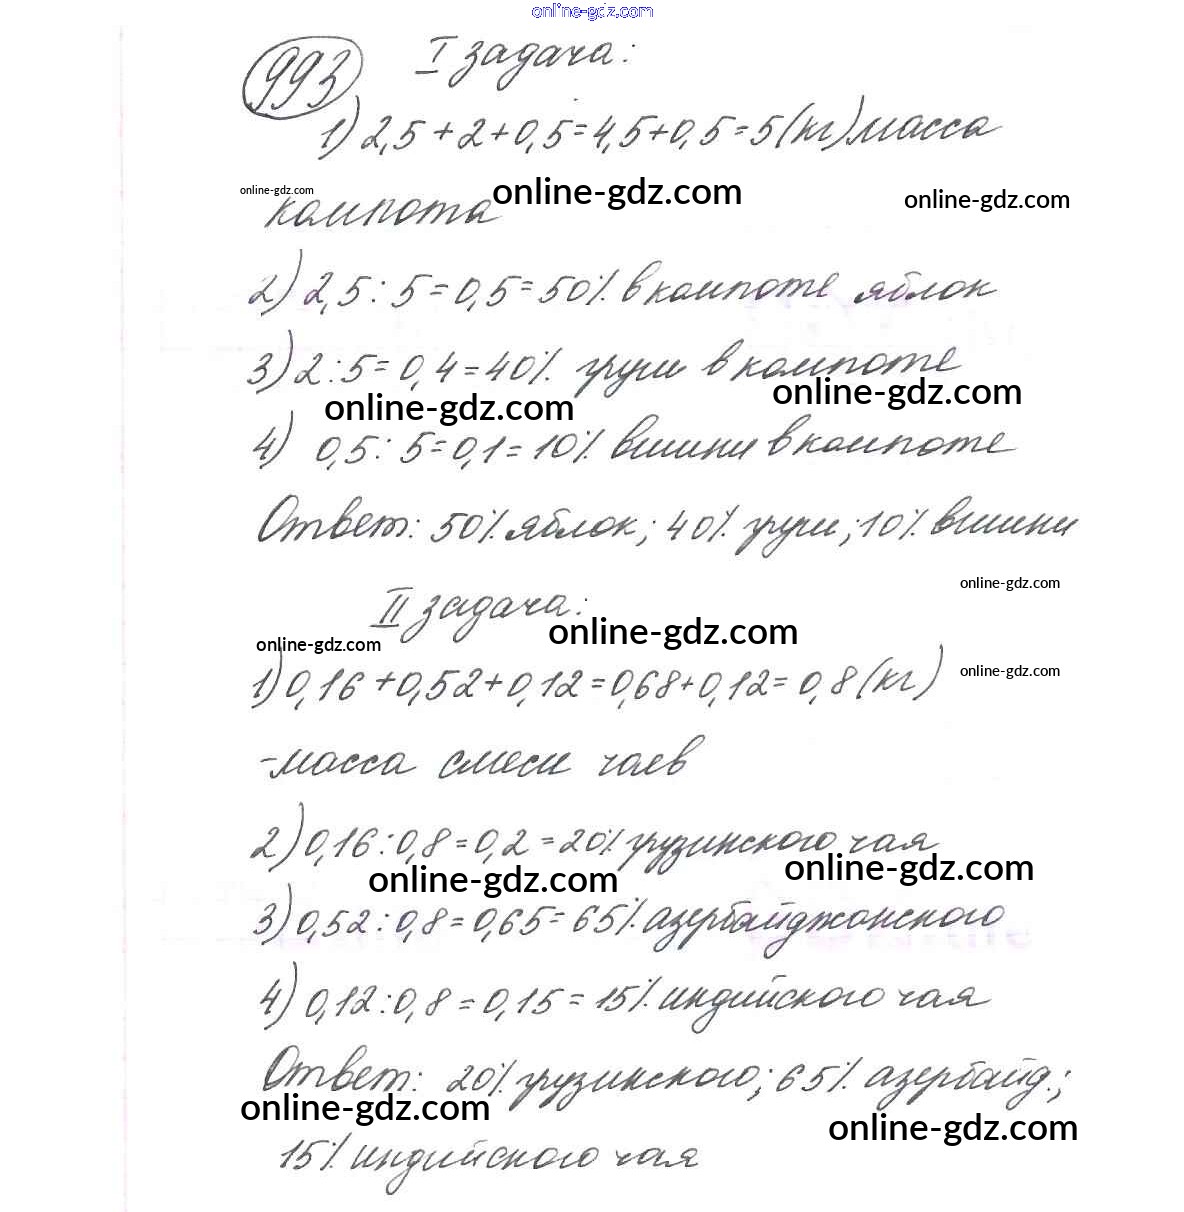 online-gdz.com
993 I задача:
1) 2,5 + 2 + 0,5 = 4,5 + 0,5 = 5 (кг) масса
online-gdz.com online-gdz.com online-gdz.com
компота
2) 2,5 : 5 = 0,5 = 50% в компоте яблок
3) 2 : 5 = 0,4 = 40% груш в компоте
online-gdz.com online-gdz.com
4) 0,5 : 5 = 0,1 = 10% вишни в компоте
Ответ: 50% яблок; 40% груш; 10% вишни
online-gdz.com
II задача:
online-gdz.com online-gdz.com
1) 0,16 + 0,52 + 0,12 = 0,68 + 0,12 = 0,8 (кг)
online-gdz.com
-масса смеси чаев
2) 0,16 : 0,8 = 0,2 = 20% грузинского чая
online-gdz.com online-gdz.com
3) 0,52 : 0,8 = 0,65 = 65% азербайджонского
4) 0,12 : 0,8 = 0,15 = 15% индийского чая
Ответ: 20% грузинского; 65% азербайд.;
online-gdz.com online-gdz.com
15% индийского чая